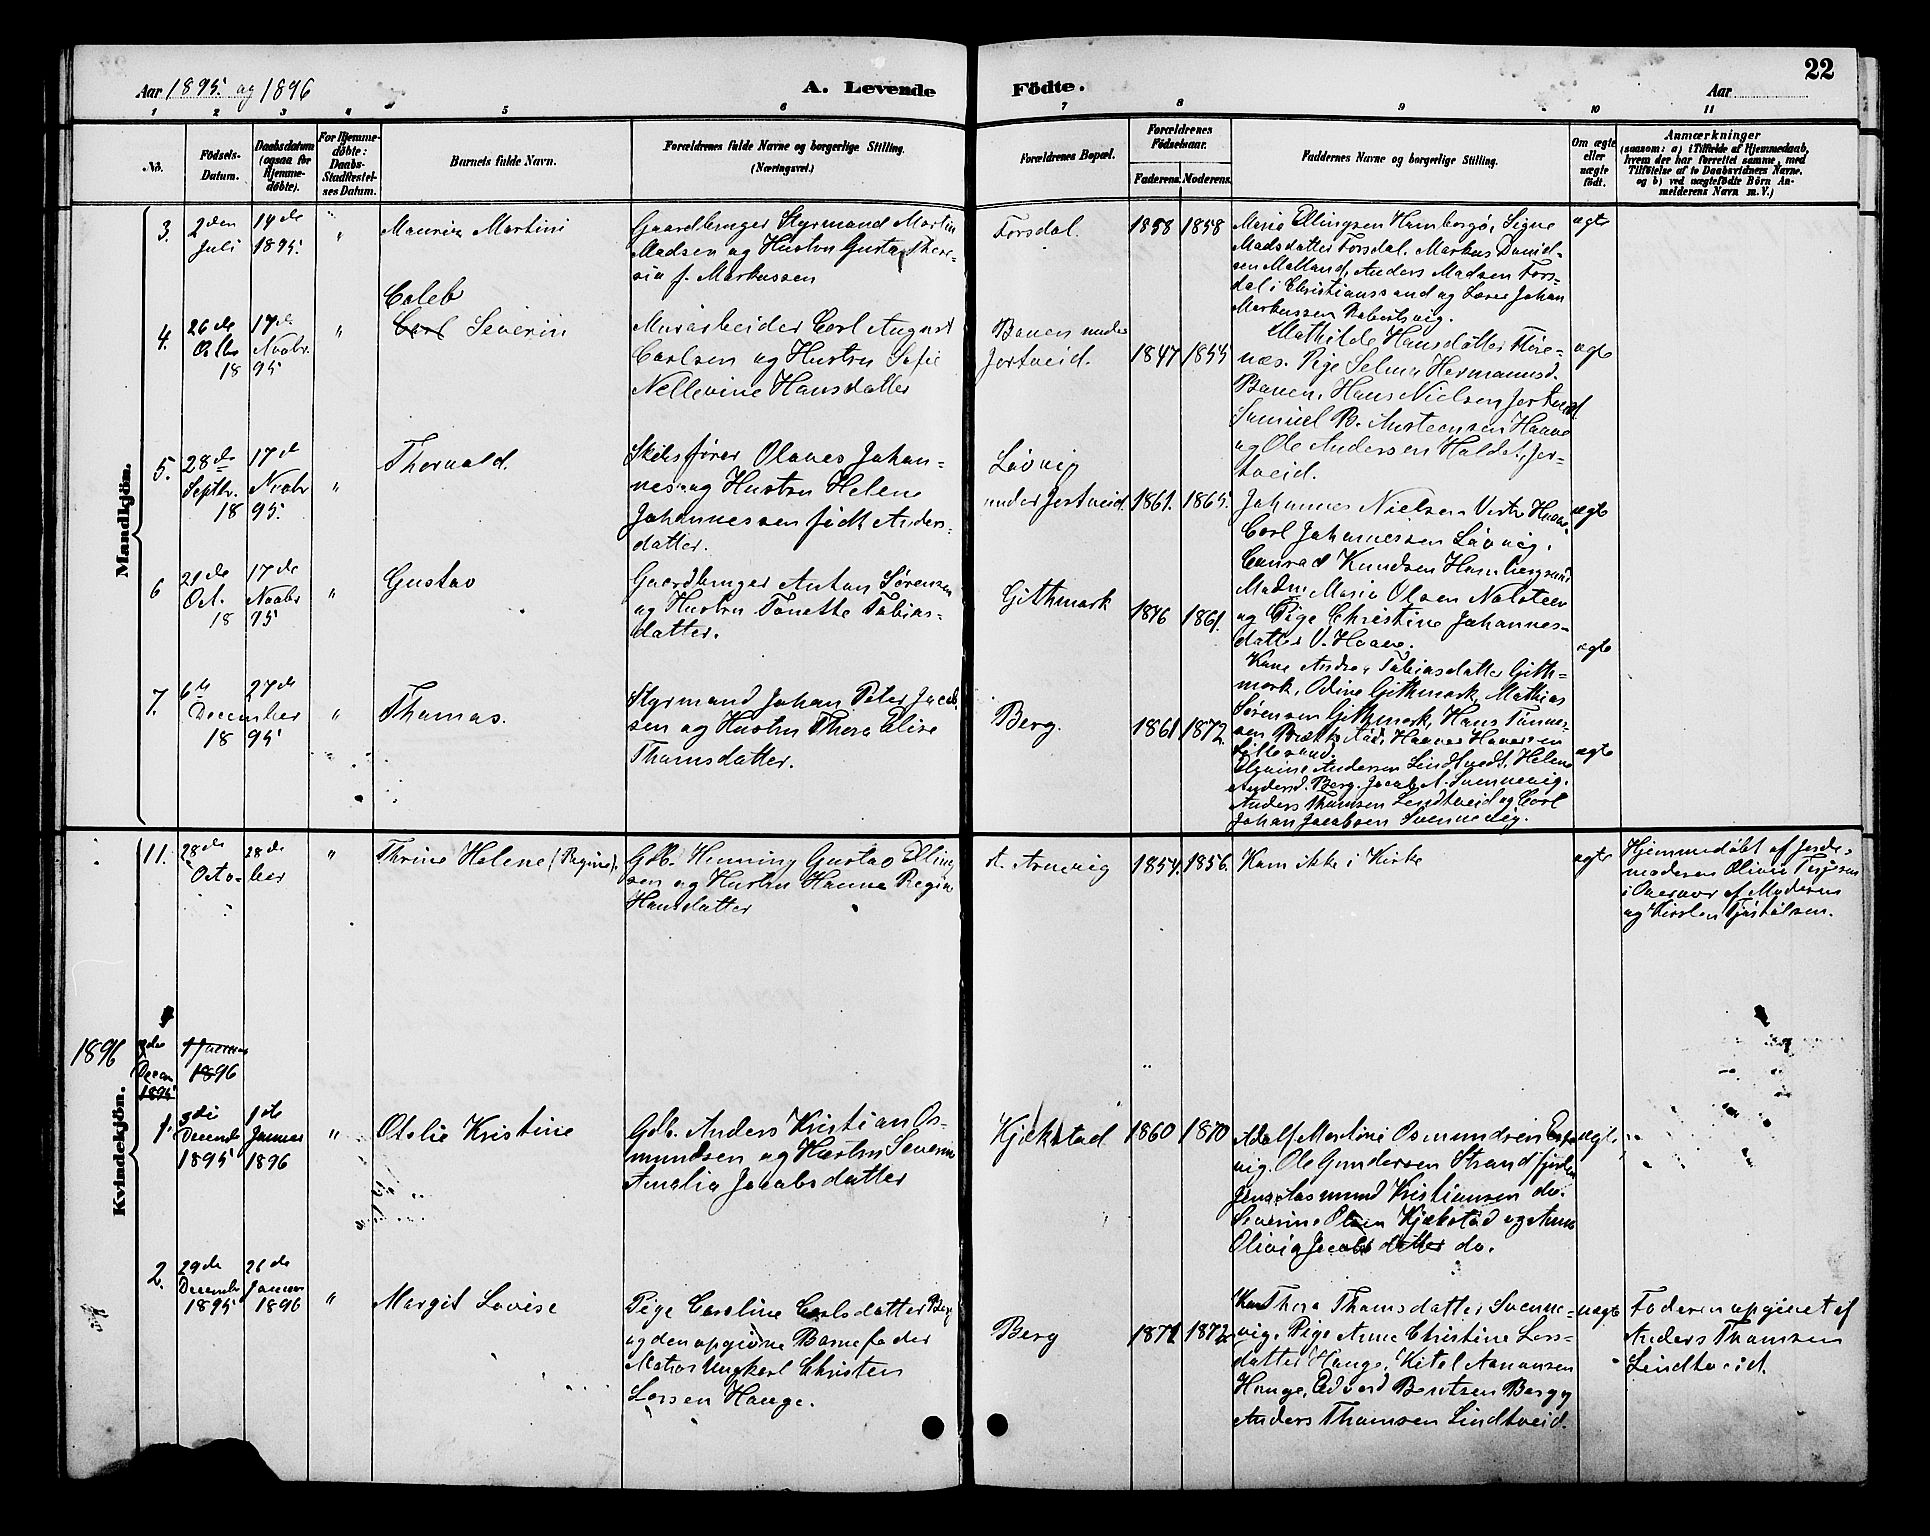 22
Aar 1895. og 1896
A. Levende
Födte.
Aar
1 2 3 4 5 6 7 8 9 10 11
No.
Födsels-
Datum.
Daabsdatum
(ogsaa for
Hjemme-
döbte).
For Hjemme-
döbte:
Daabs-
Stadfæstel-
ses Datum.
Barnets fulde Navn.
Forældrenes fulde Navne og borgerlige Stilling.
(Næringsvei.)
Forældrenes Bopæl.
Forældrenes
Födselsaar.
Faderens. Moderens.
Faddernes Navne og borgerlige Stilling.
Om ægte
eller
uægte
födt.
Anmærkninger
(saasom: a) i Tilfælde af Hjemmedaab,
hvem der har forrettet samme, med
Tilföielse af to Daabsvidners Navne.
og b) ved uægtefödte Börn An-
melderens Navn m. V.)
Mandkjön.
3.
2den
Juli
14de
1895.
"
Martini
Gaardbruger Styrmand Martin
Madsen og Hustru Gusta There-
sia f. Markussen
Forsdal.
1858 1858
Maria Ellingsen Hamborgø, Signe
Madsdatter Forsdal. Markus Daniel-
sen Molland, Anders Madsen Fors-
dal i Christianssand og Lærer Johan
Markussen
ægte
4.
26de
Octbr
18
17de
Novbr.
95
"
Caleb
Carl Severin
Murarbeider Carl August
Carlsen og Hustru Sofie
Nellevine Hansdatter
Bauen under
Jortveid.
1847 1855
Mathilde Hansdatter
næs. Pige Selma Hermannsd.
Bauen, Hans Nielsen Jortveid
Samuel B. Austeensen Haave
og Ole Andersen Jor-
tveid.
ægte
5.
28de
Septbr.
18
17de
Novbr
95.
"
Thorvald.
Skibsfører Olaves Johan-
nesen og Hustru Helene
Johannessen født Anders-
datter.
Løvvig
under Jortveid.
1861. 1865.
Johannes Nielsen Vestre Haave,
Carl Johannessen Løvvig.
Conrad Knudsen
Madm. Maria Olsen
og Pige Christine Johannes-
datter V. Haave.
ægte
6
21de
Oct.
18
17de
Novbr
95
"
Gustav
Gaardbruger Anton Sørensen
og Hustru Tonette Tobias-
datter.
Githmark
1846 1861.
Kone Andrea Tobiasdatter Gith-
mark, Odine Githmark, Mathias
Sørensen Githmark, Hans Tønnes-
sen
Lillesand.
ægte
7.
6te
December
18
27de
95
"
Thomas.
Styrmand Johan Peter Jacob-
sen og Hustru Thora Elise
Thomsdatter.
Berg.
1861 1872.
Andersen Lindtvedt, Helene
Andersd. Berg. Jacob A. Svennevig.
Anders Thomsen Lindtveid og Carl
Johan Jacobsen Svennevig.
ægte
Kvindekjön.
11.
28de
Octo-
28de
ber
"
Thrine Helene (Regine).
Gdb. Henning Gustav Elling-
sen og Hustru Hanna Regine
Hansdatter
1854. 1856.
Kom ikke i Kirke
ægte
Hjemmedøbt af Jorde-
moderen Olivia Terjesen
i Overvær af Moderen
og Kirsten
1896
3die
Decem
1895
1 Januar
1896
1.
3die
December
1895
1ste
Januar
1896
"
Otolie Kristine
Gdb. Anders Kristian Os-
mundsen og Hustru Severine
Amalia Jacobsdatter
Kjækstad
1860 1870
Adolf Martini Osmundsen
vig. Ole Gundersen Strandfjorden
Jens Aasmund Kristiansen do.
Severine Olsen Kjækstad og Anna
Olivia Jacobsdatter do.
ægte
2.
29de
December
1895
26de
Januar
1896
"
Margit Lovise
Pige Caroline Carlsdatter Berg
og den opgivne Barnefader
Matros Ungkarl Christen
Larsen Hauge.
Berg
1871 1872
Kone Thora Thomsdatter Svenne-
vig. Pige Anne Christine Lars-
datter Hauge, Kitel Aanonsen
Hauge, Edvard Bentsen Berg og
Anders Thomsen Lindtveid.
uægte
Faderen opgivet af
Anders Thomsen
Lindtveit